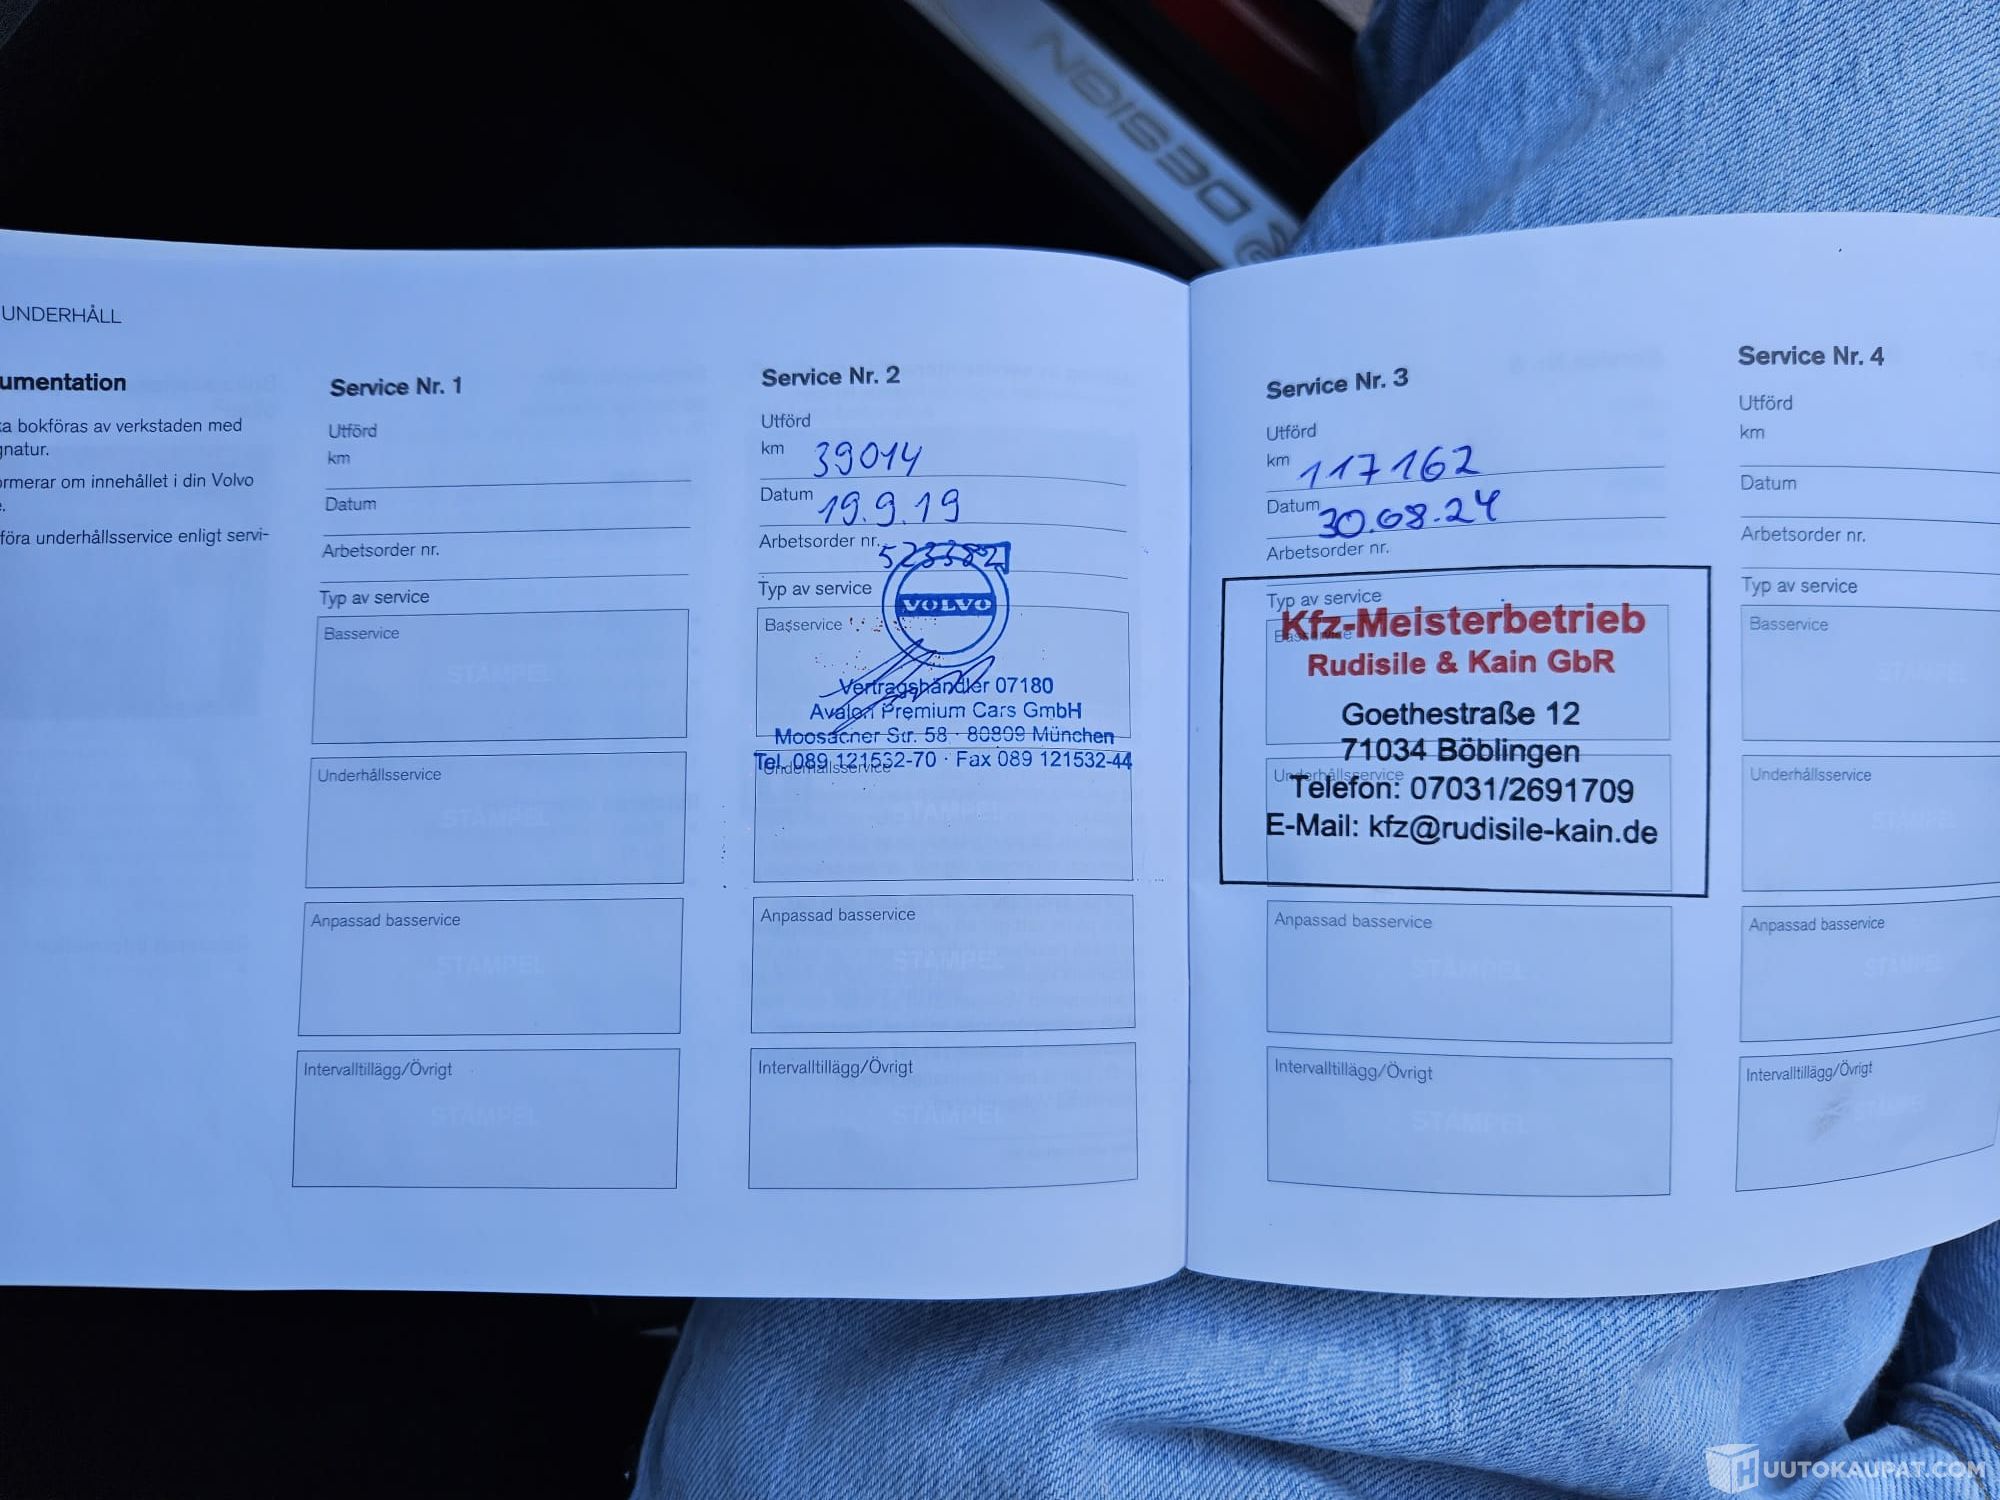 R-DESIGN
UNDERHÅLL
umentation
ka bokföras av verkstaden med
gnatur.
ormerar om innehållet i din Volvo
e.
föra underhållsservice enligt servi-
Service Nr. 1
Utförd
km
Datum
Arbetsorder nr.
Typ av service
Basservice
STÄMPEL
Underhållsservice
STÄMPEL
Anpassad basservice
STÄMPEL
Intervalltillägg/Övrigt
STÄMPEL
Service Nr. 2
Utförd
km 39014
Datum 19.9.19
Arbetsorder nr. 523382
Typ av service
VOLVO
Basservice
Vertragshändler 07180
Avalon Premium Cars GmbH
Moosacher Str. 58 · 80809 München
Tel. 089 121532-70 · Fax 089 121532-44
Underhållsservice
STÄMPEL
Anpassad basservice
STÄMPEL
Intervalltillägg/Övrigt
STÄMPEL
Service Nr. 3
Utförd
km 117162
Datum 30.08.24
Arbetsorder nr.
Typ av service
Basservice
Kfz-Meisterbetrieb
Rudisile & Kain GbR
Goethestraße 12
71034 Böblingen
Underhållsservice
Telefon: 07031/2691709
E-Mail: kfz@rudisile-kain.de
Anpassad basservice
STÄMPEL
Intervalltillägg/Övrigt
STÄMPEL
Service Nr. 4
Utförd
km
Datum
Arbetsorder nr.
Typ av service
Basservice
STÄMPEL
Underhållsservice
STÄMPEL
Anpassad basservice
STÄMPEL
Intervalltillägg/Övrigt
STÄMPEL
HUUTOKAUPAT.COM